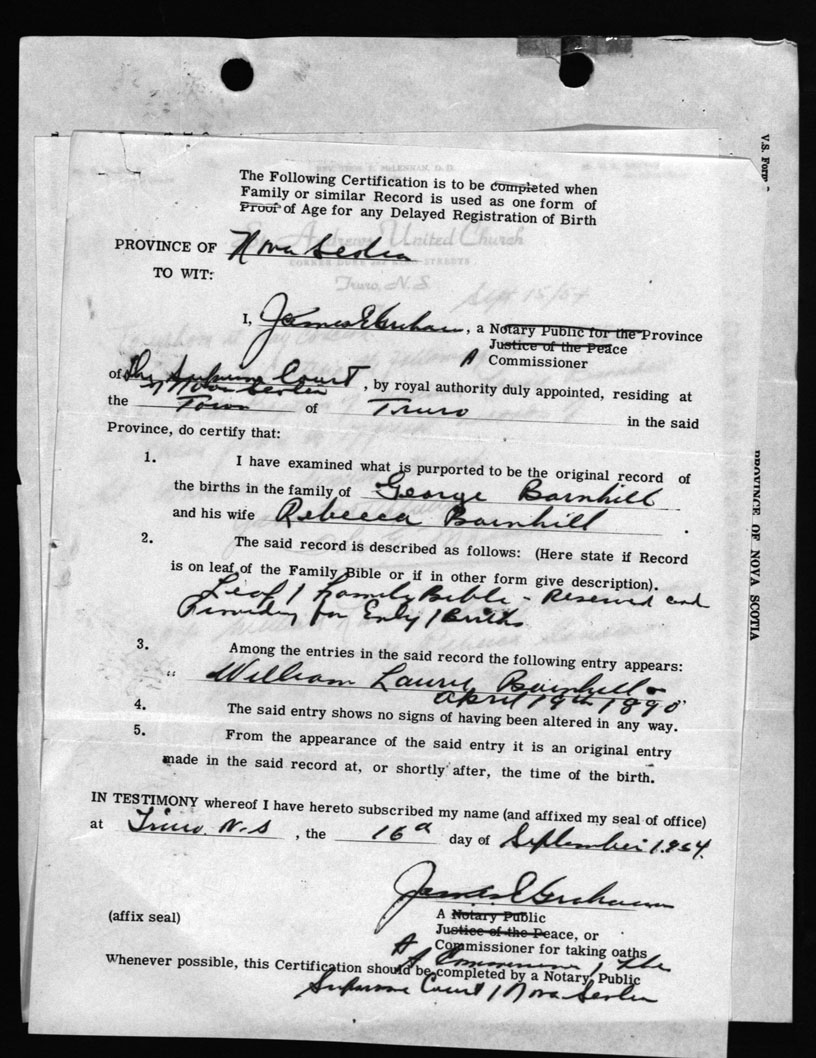 The Following Certification is to be completed when
Family or similar Record is used as one form of
Proof of Age for any Delayed Registration of Birth
St. Andrews United Church
Truro, N.S.
Sept 15/54
PROVINCE OF Nova Scotia
TO WIT:
I, James E Graham, a Notary Public for the Province
Justice of the Peace
A Commissioner
of the Supreme Court
of Nova Scotia, by royal authority duly appointed, residing at
the Town of Truro in the said
Province, do certify that:
1. I have examined what is purported to be the original record of
the births in the family of George Barnhill
and his wife Rebecca Barnhill.
2. The said record is described as follows: (Here state if Record
is on leaf of the Family Bible or if in other form give description).
Leaf / Family Bible - Reserved and
Providing for Entry / Births
3. Among the entries in the said record the following entry appears:
" William Laurie Barnhill
April 19th 1890"
4. The said entry shows no signs of having been altered in any way.
5. From the appearance of the said entry it is an original entry
made in the said record at, or shortly after, the time of the birth.
IN TESTIMONY whereof I have hereto subscribed my name (and affixed my seal of office)
at Truro, N.S, the 16th day of September 1954.
James E Graham
(affix seal)
A Notary Public
Justice of the Peace, or
A Commissioner for taking oaths
A Commissioner / the
Whenever possible, this Certification should be completed by a Notary Public
Supreme Court / Nova Scotia
V.S. Form
PROVINCE OF NOVA SCOTIA